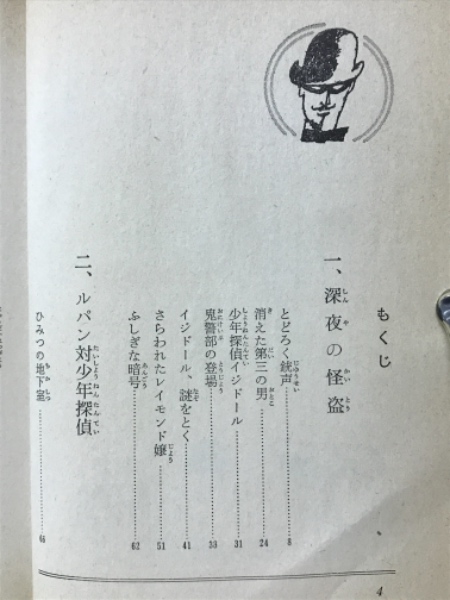 もくじ
一、深夜の怪盗
とどろく銃声 8
消えた第三の男 24
少年探偵イジドール 31
鬼警部の登場 38
イジドール、謎をとく 41
さらわれたレイモンド嬢 51
ふしぎな暗号 62
二、ルパン対少年探偵
ひみつの地下室 66
4